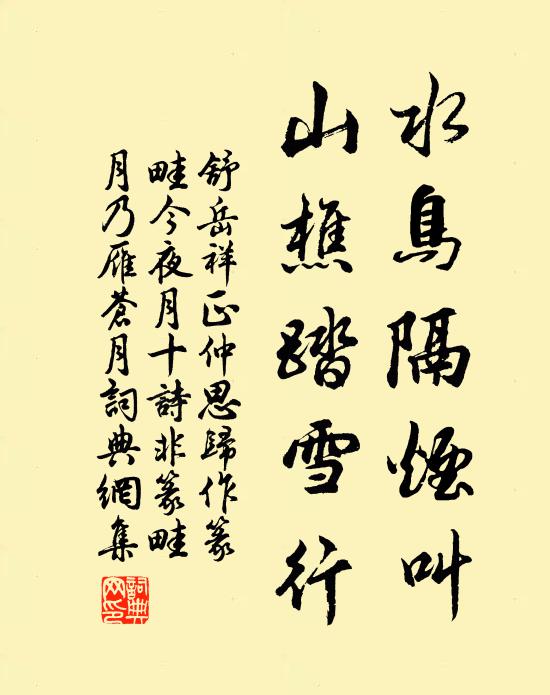 水鳥隔煙叫
山樵踏雪行
舒岳祥正仲思歸作篆
畦今夜月十詩非篆畦
月乃雁蒼月詞典網集
詞典